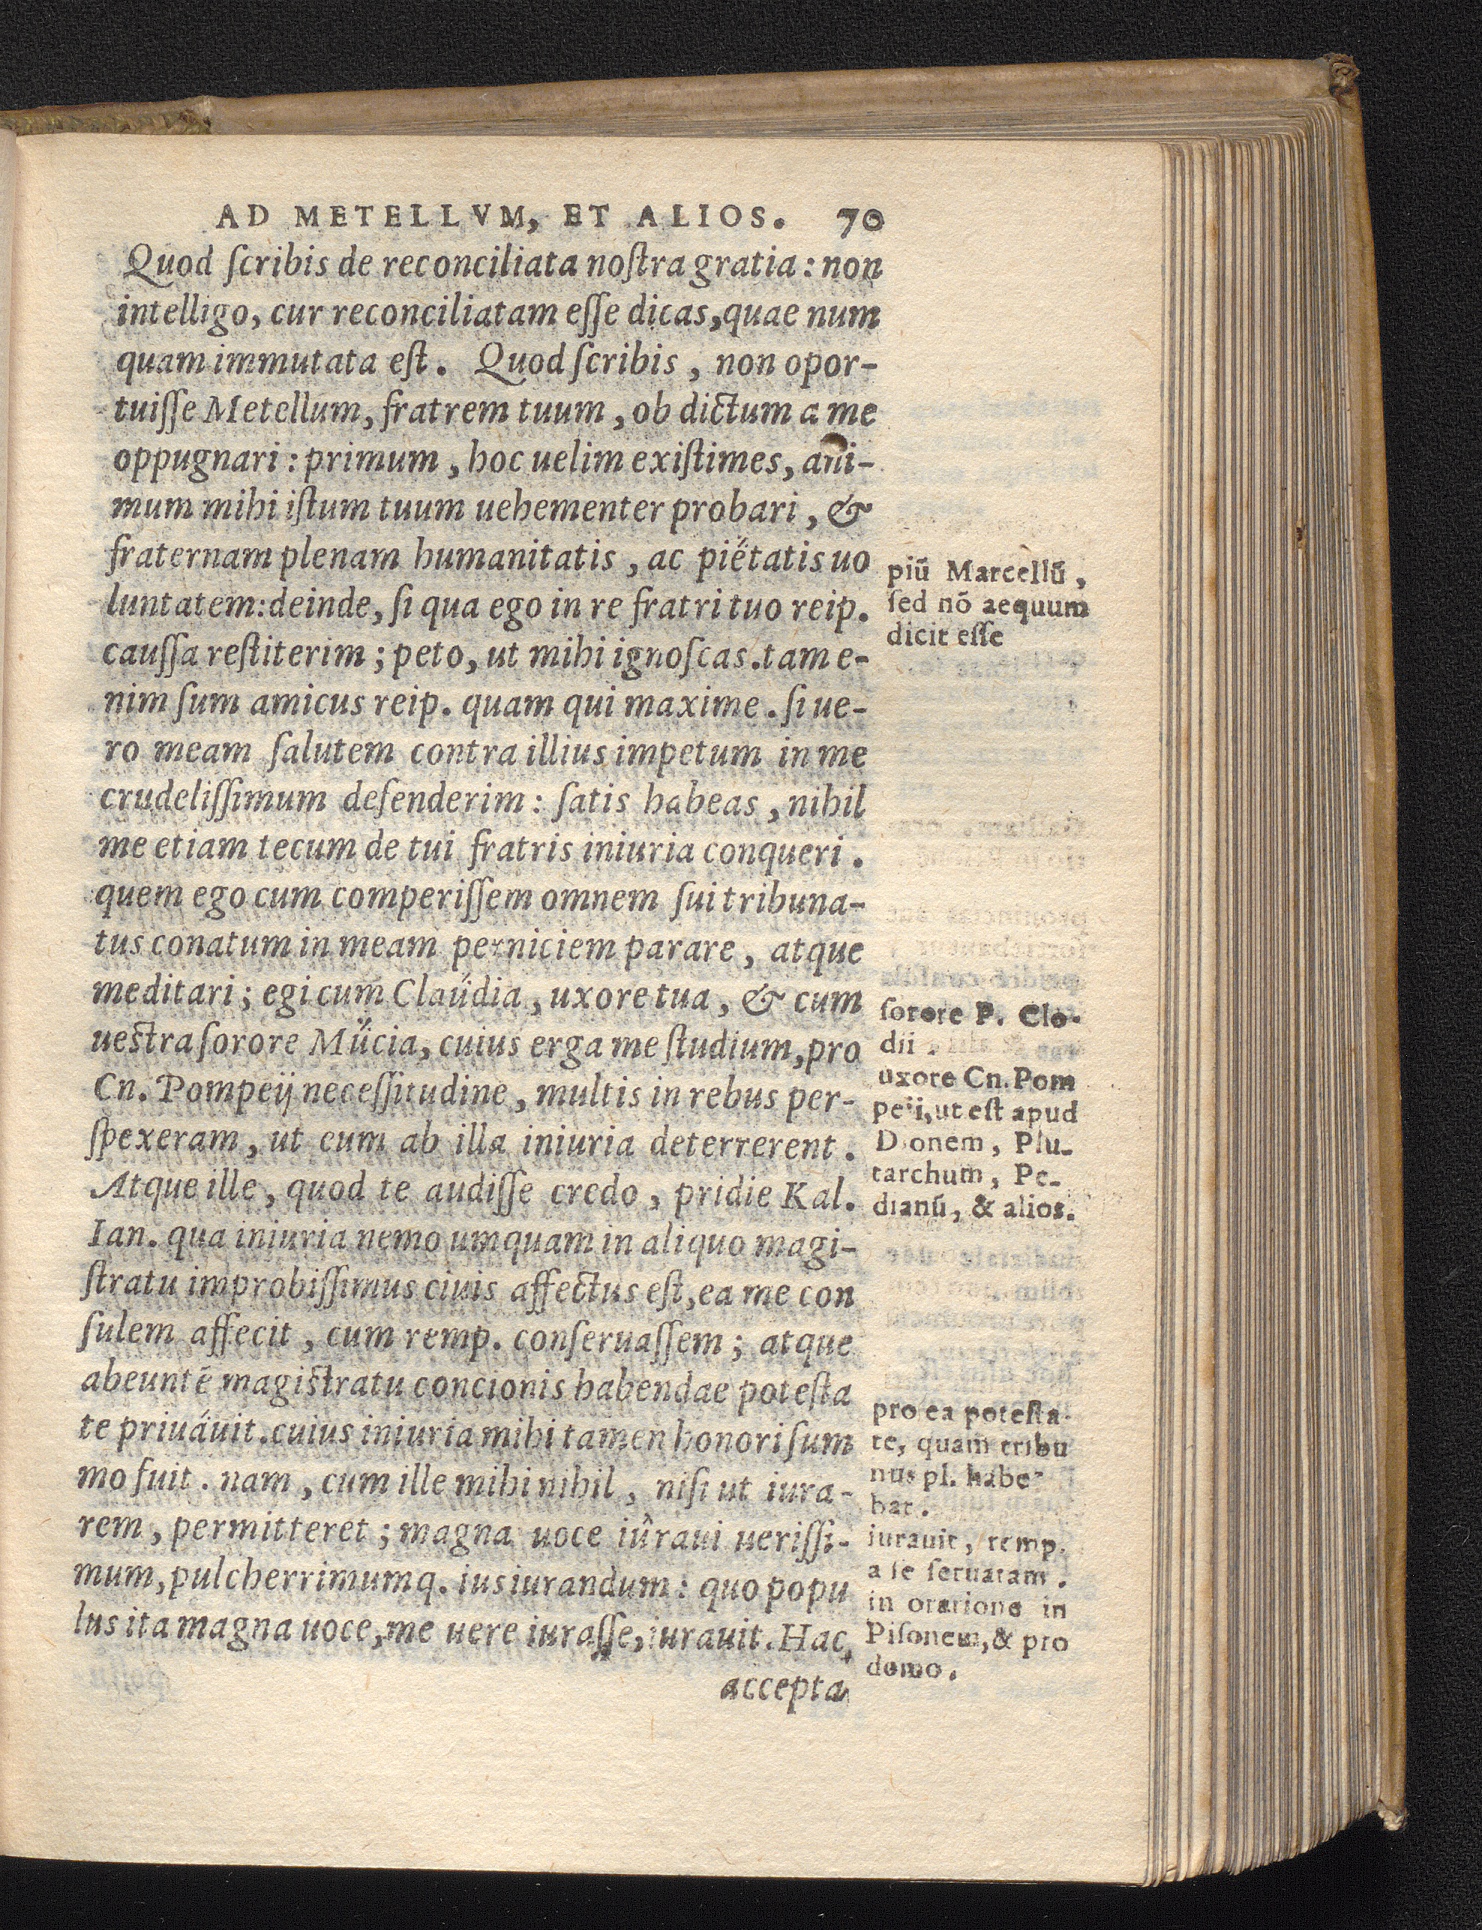 AD METELLVM, ET ALIOS. 70
Quod ſcribis de reconciliata noſtra gratia: non
intelligo, cur reconciliatam eſſe dicas, quae num
quam immutata eſt. Quod ſcribis, non opor-
tuiſſe Metellum, fratrem tuum, ob dictum a me
oppugnari: primum, hoc uelim exiſtimes, ani-
mum mihi iſtum tuum uehementer probari, &
fraternam plenam humanitatis, ac pietatis uo
luntatem: deinde, ſi qua ego in re fratri tuo reip.
cauſſa reſtiterim; peto, ut mihi ignoſcas. tam e-
nim ſum amicus reip. quam qui maxime. ſi ue-
ro meam ſalutem contra illius impetum in me
crudeliſſimum defenderim: ſatis habeas, nihil
me etiam tecum de tui fratris iniuria conqueri.
quem ego cum comperiſſem omnem ſui tribuna-
tus conatum in meam perniciem parare, atque
meditari; egi cum Claudia, uxore tua, & cum
ueſtra ſorore Mucia, cuius erga me ſtudium, pro
Cn. Pompeij neceſſitudine, multis in rebus per-
ſpexeram, ut eum ab illa iniuria deterrerent.
Atque ille, quod te audiſſe credo, pridie Kal.
Ian. qua iniuria nemo umquam in aliquo magi-
ſtratu improbiſſimus ciuis affectus eſt, ea me con
ſulem affecit, cum remp. conſeruaſſem; atque
abeuntē magiſtratu concionis habendae poteſta
te priuáuit. cuius iniuria mihi tamen honori ſum
mo fuit. nam, cum ille mihi nihil, niſi ut iura-
rem, permitteret; magna uoce iûraui ueriſſi-
mum, pulcherrimumq. iusiurandum: quo popu
lus ita magna uoce, me uere iuraſſe, iurauit. Hac
accepta
piũ Marcellũ,
ſed nõ aequum
dicit eſſe
ſorore P. Clo-
dii.
uxore Cn. Pom
peii, ut eſt apud
Dionem, Plu-
tarchum, Pe-
dianũ, & alios.
pro ea poteſta-
te, quam tribu
nus pl. habe-
bat.
iurauit, remp.
a ſe ſeruatam.
in oratione in
Piſonem, & pro
domo.